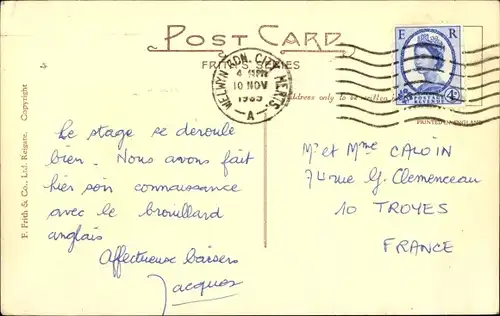 POST CARD
FRITH'S SERIES
WELWYN GDN. CITY HERTS.
10 NOV
A
E R
POSTAGE REVENUE
4D
address only to be written
PRINTED IN ENGLAND
F. Frith & Co., Ltd. Reigate. Copyright
Le stage se déroule
bien. Nous avons fait
hier soir connaissance
avec le brouillard
anglais
Affectueux baisers
Jacques
Mr et Mme CALOIN
74 rue G. Clemenceau
10 TROYES
FRANCE